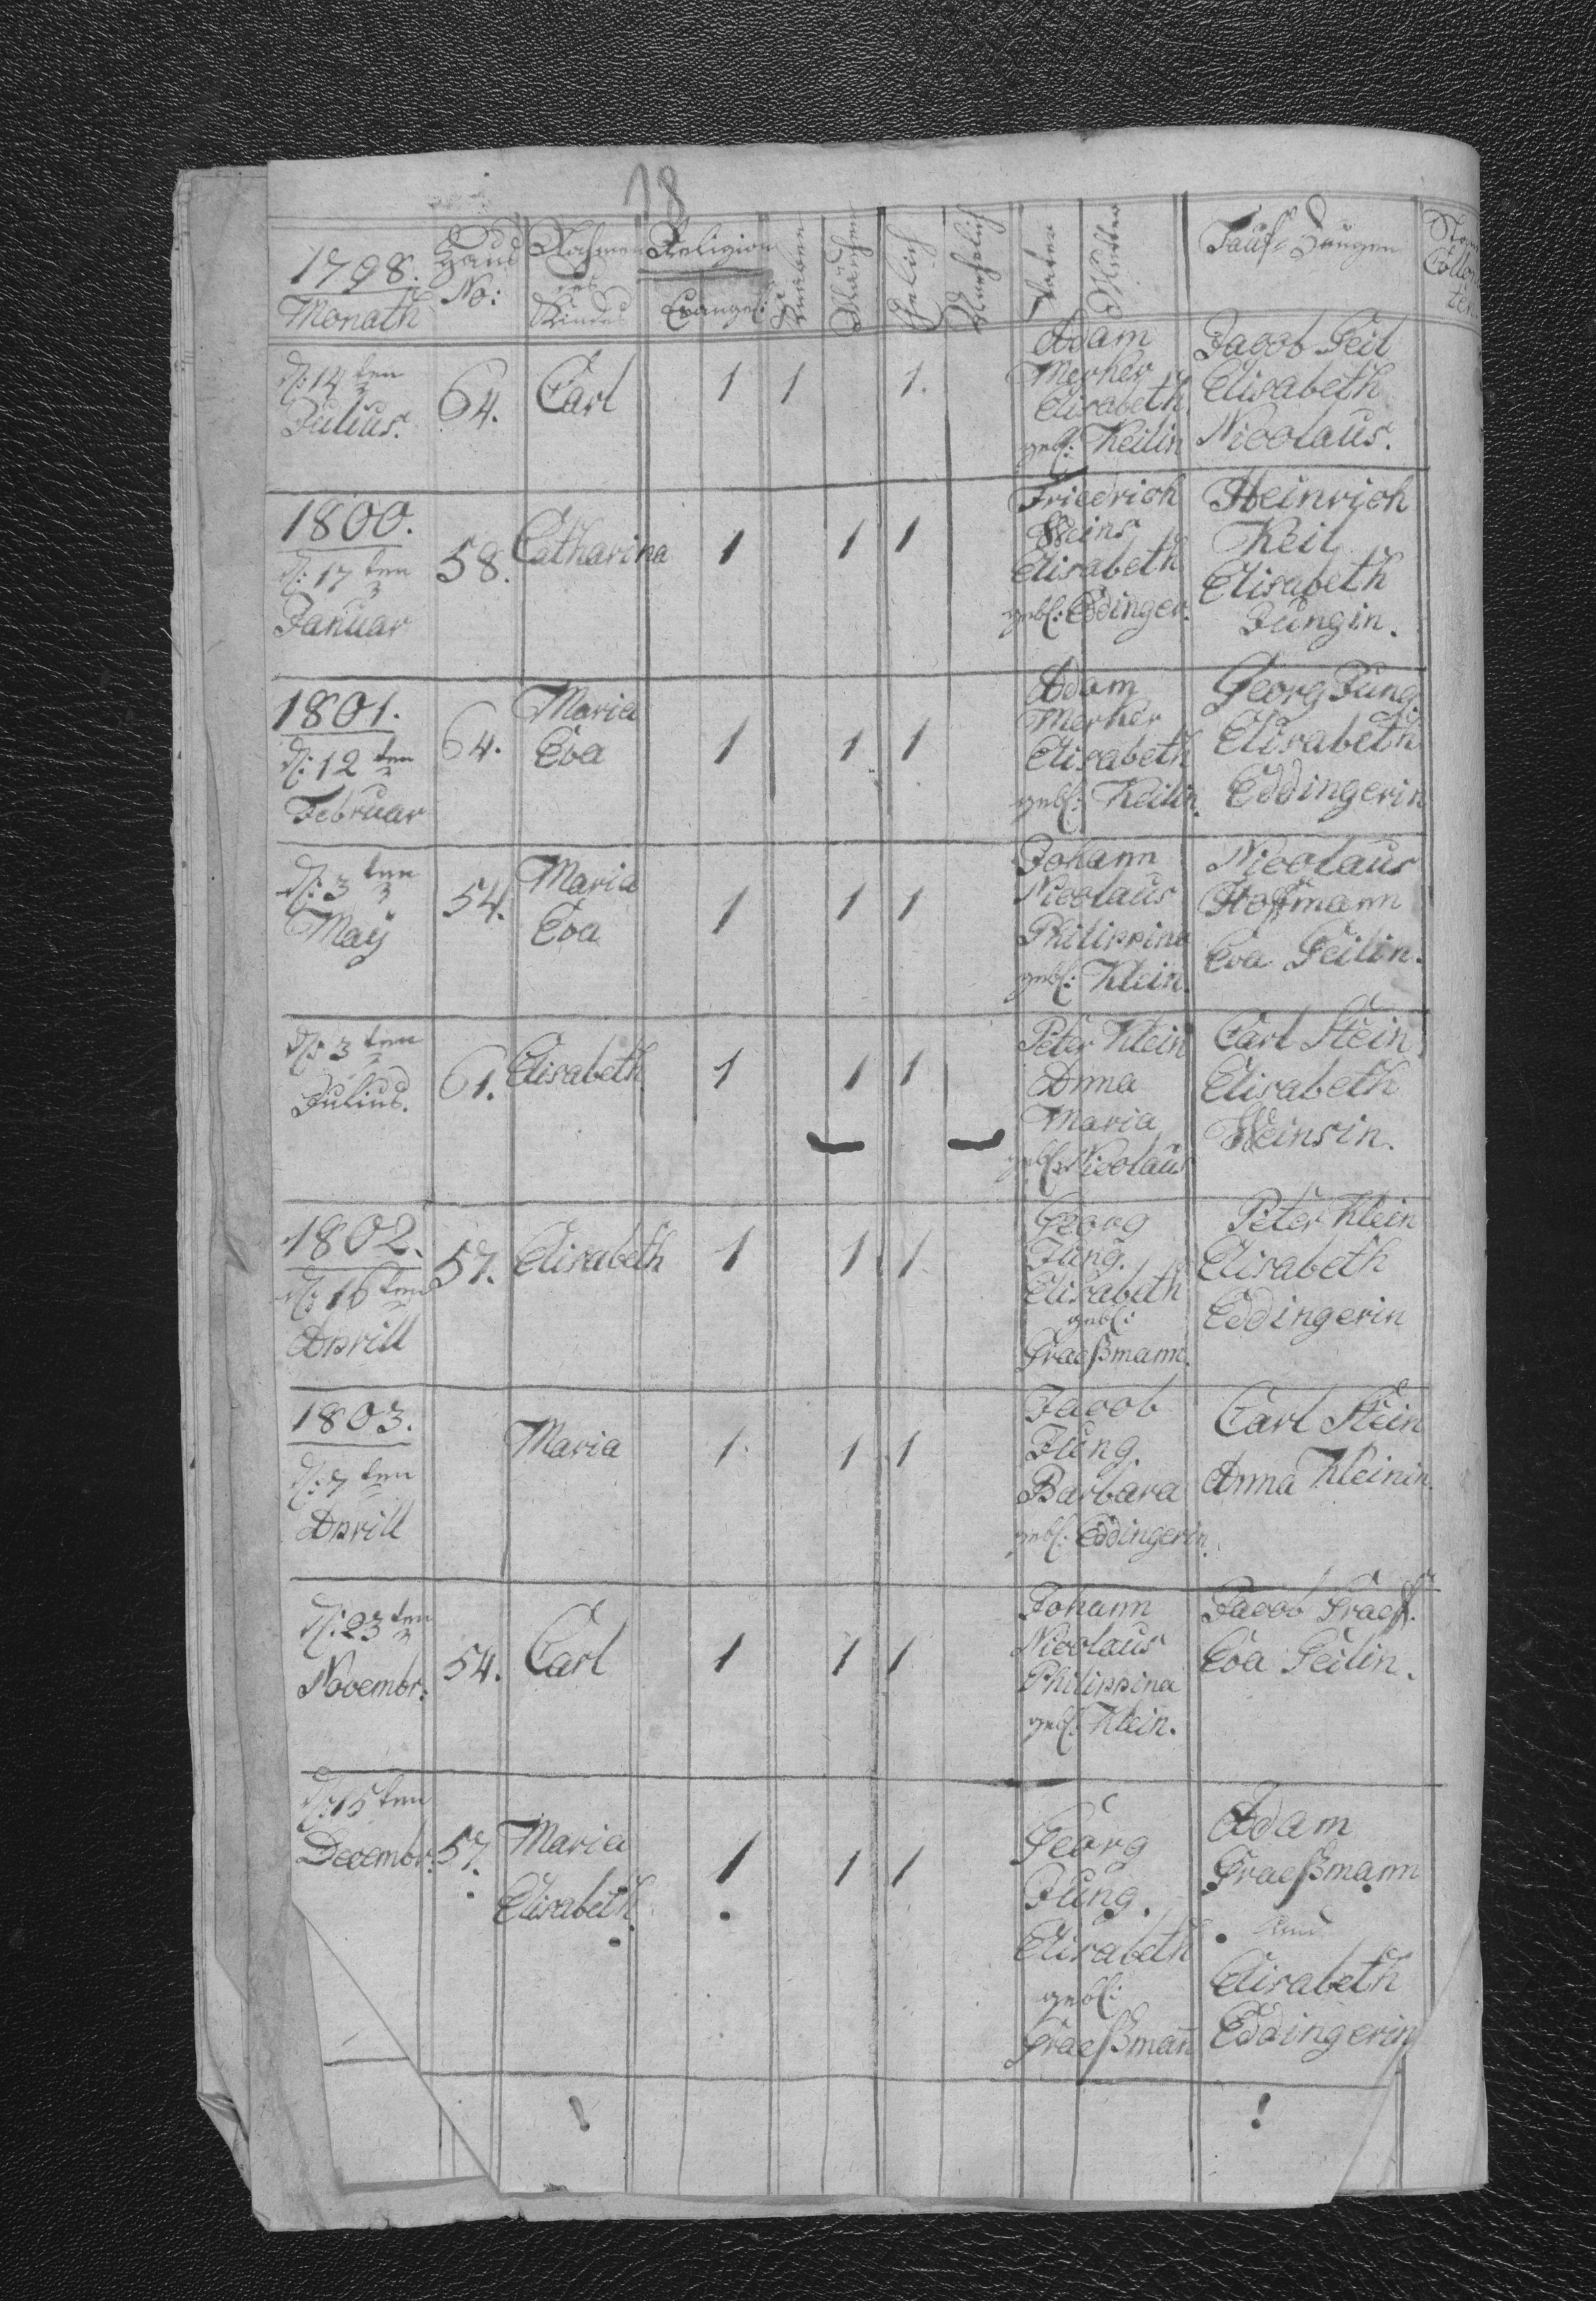 18
1798.
Monath
Haus
No:
Nahmen
des
Kindes
Religion
Evangel:
Knaben
Mädchen
Ehelich
Unehelich
Vater
Mutter
Tauf-Zeugen
d: 14ten
Julius.
64.
Carl
1 1 1.
Adam
Merker
Elisabeth
geb: Keilin
Jacob Feil
Elisabeth
Nicolaus.
1800.
d: 17ten
Januar
58.
Catharina
1 1 1
Friedrich
Weins
Elisabeth
gebl: Eddinger.
Heinrich
Keil
Elisabeth
Jungin.
1801.
d: 12ten
Februar
64.
Maria
Eva
1 1 1
Adam
Merker
Elisabeth
gebl: Keilin.
Georg Jung.
Elisabeth
Eddingerin
d: 3ten
May
54.
Maria
Eva
1 1 1
Johann
Nicolaus
Philippina
gebl: Klein.
Nicolaus
Hoffmann
Eva Feilin.
d: 3ten
Julius.
61.
Elisabeth
1 1 1
Peter Klein
Anna
Maria
gebl: Nicolaus
Carl Stein
Elisabeth
Weinsin.
1802.
d: 16ten
Aprill
57.
Elisabeth
1 1 1
Georg
Jung.
Elisabeth
gebl:
Graeßmann.
Peter Klein
Elisabeth
Eddingerin
1803.
d: 7ten
Aprill
Maria
1 1 1
Jacob
Jung.
Barbara
gebl: Eddingerin.
Carl Stein
Anna Kleinin.
d: 23ten
Novembr:
54.
Carl
1 1 1
Johann
Nicolaus
Philippina
gebl: Klein.
Jacob
Eva Feilin.
d: 15ten
Decembr:
57.
Maria
Elisabeth
1 1 1
Georg
Jung.
Elisabeth
gebl:
Graeßman̄
Adam
Graeßmann
und
Elisabeth
Eddingerin